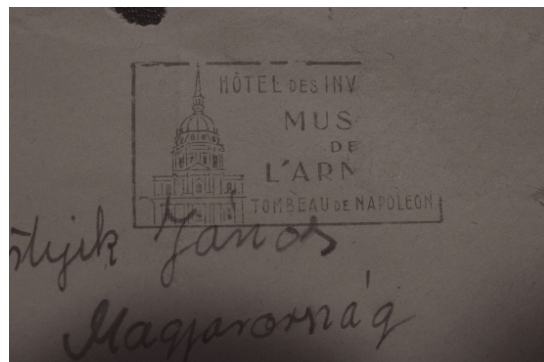 HÔTEL DES INV
MUS
DE
L'ARM
TOMBEAU DE NAPOLEON
János
Magyarország